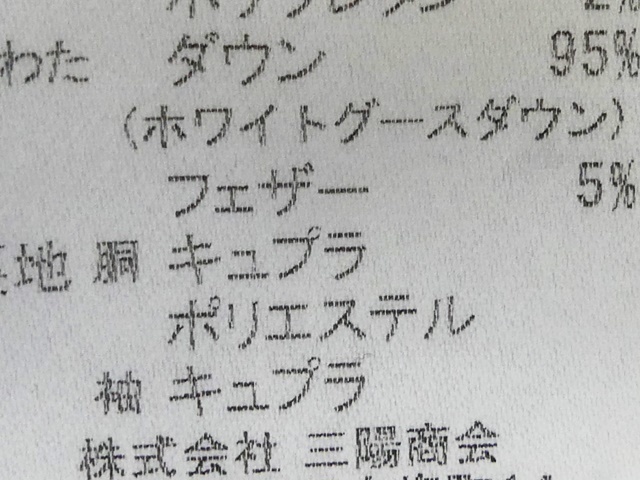 わた ダウン 95%
(ホワイトグースダウン)
フェザー 5%
地 胴 キュプラ
ポリエステル
袖 キュプラ
株式会社 三陽商会